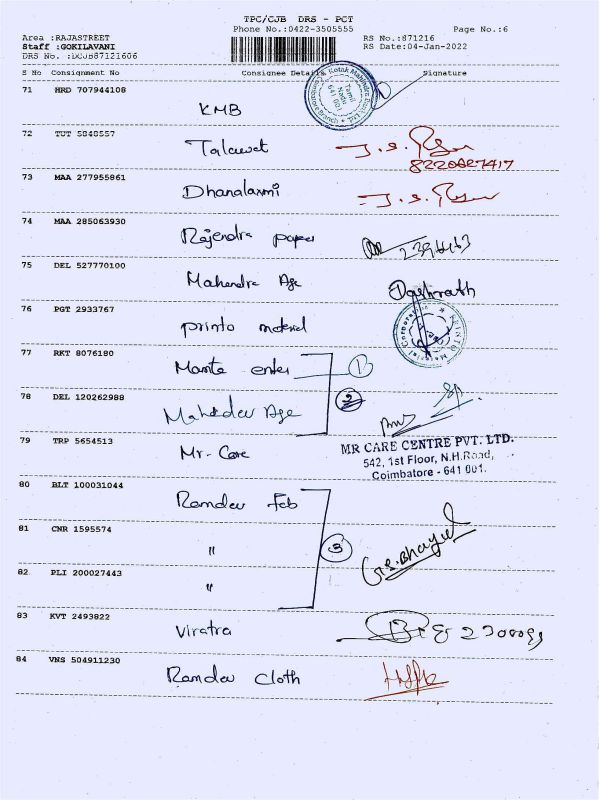 TPC/CJB DRS - PCT
Phone No.:0422-3505555 Page No.:6
Area :RAJASTREET RS No.:871216
Staff :GOKILAVANI RS Date:04-Jan-2022
DRS No. :DCJB87121606
S No Consignment No Consignee Details Signature
71 HRD 707944108
KMB
Kotak Mahindra Bank Ltd
Tamil Nadu
641 001
Branch
72 TUT 5848557
Talawat
8220827417
73 MAA 277955861
Dhanalaxmi
74 MAA 285063930
Rajendra paper
75 DEL 527770100
Mahendra Age Dashrath
76 PGT 2933767
printo material
PRINTO Material Corporation
77 RKT 8076180
enter 1
78 DEL 120262988
Mahadev Age 2
79 TRP 5654513
Mr. Care
MR CARE CENTRE PVT. LTD.
542, 1st Floor, N.H.Road,
Coimbatore - 641 001.
80 BLT 100031044
Ramdev Feb
81 CNR 1595574
" 3 G.S.Bhayal
82 PLI 200027443
"
83 KVT 2493822
Viratra
84 VNS 504911230
Ramdev cloth